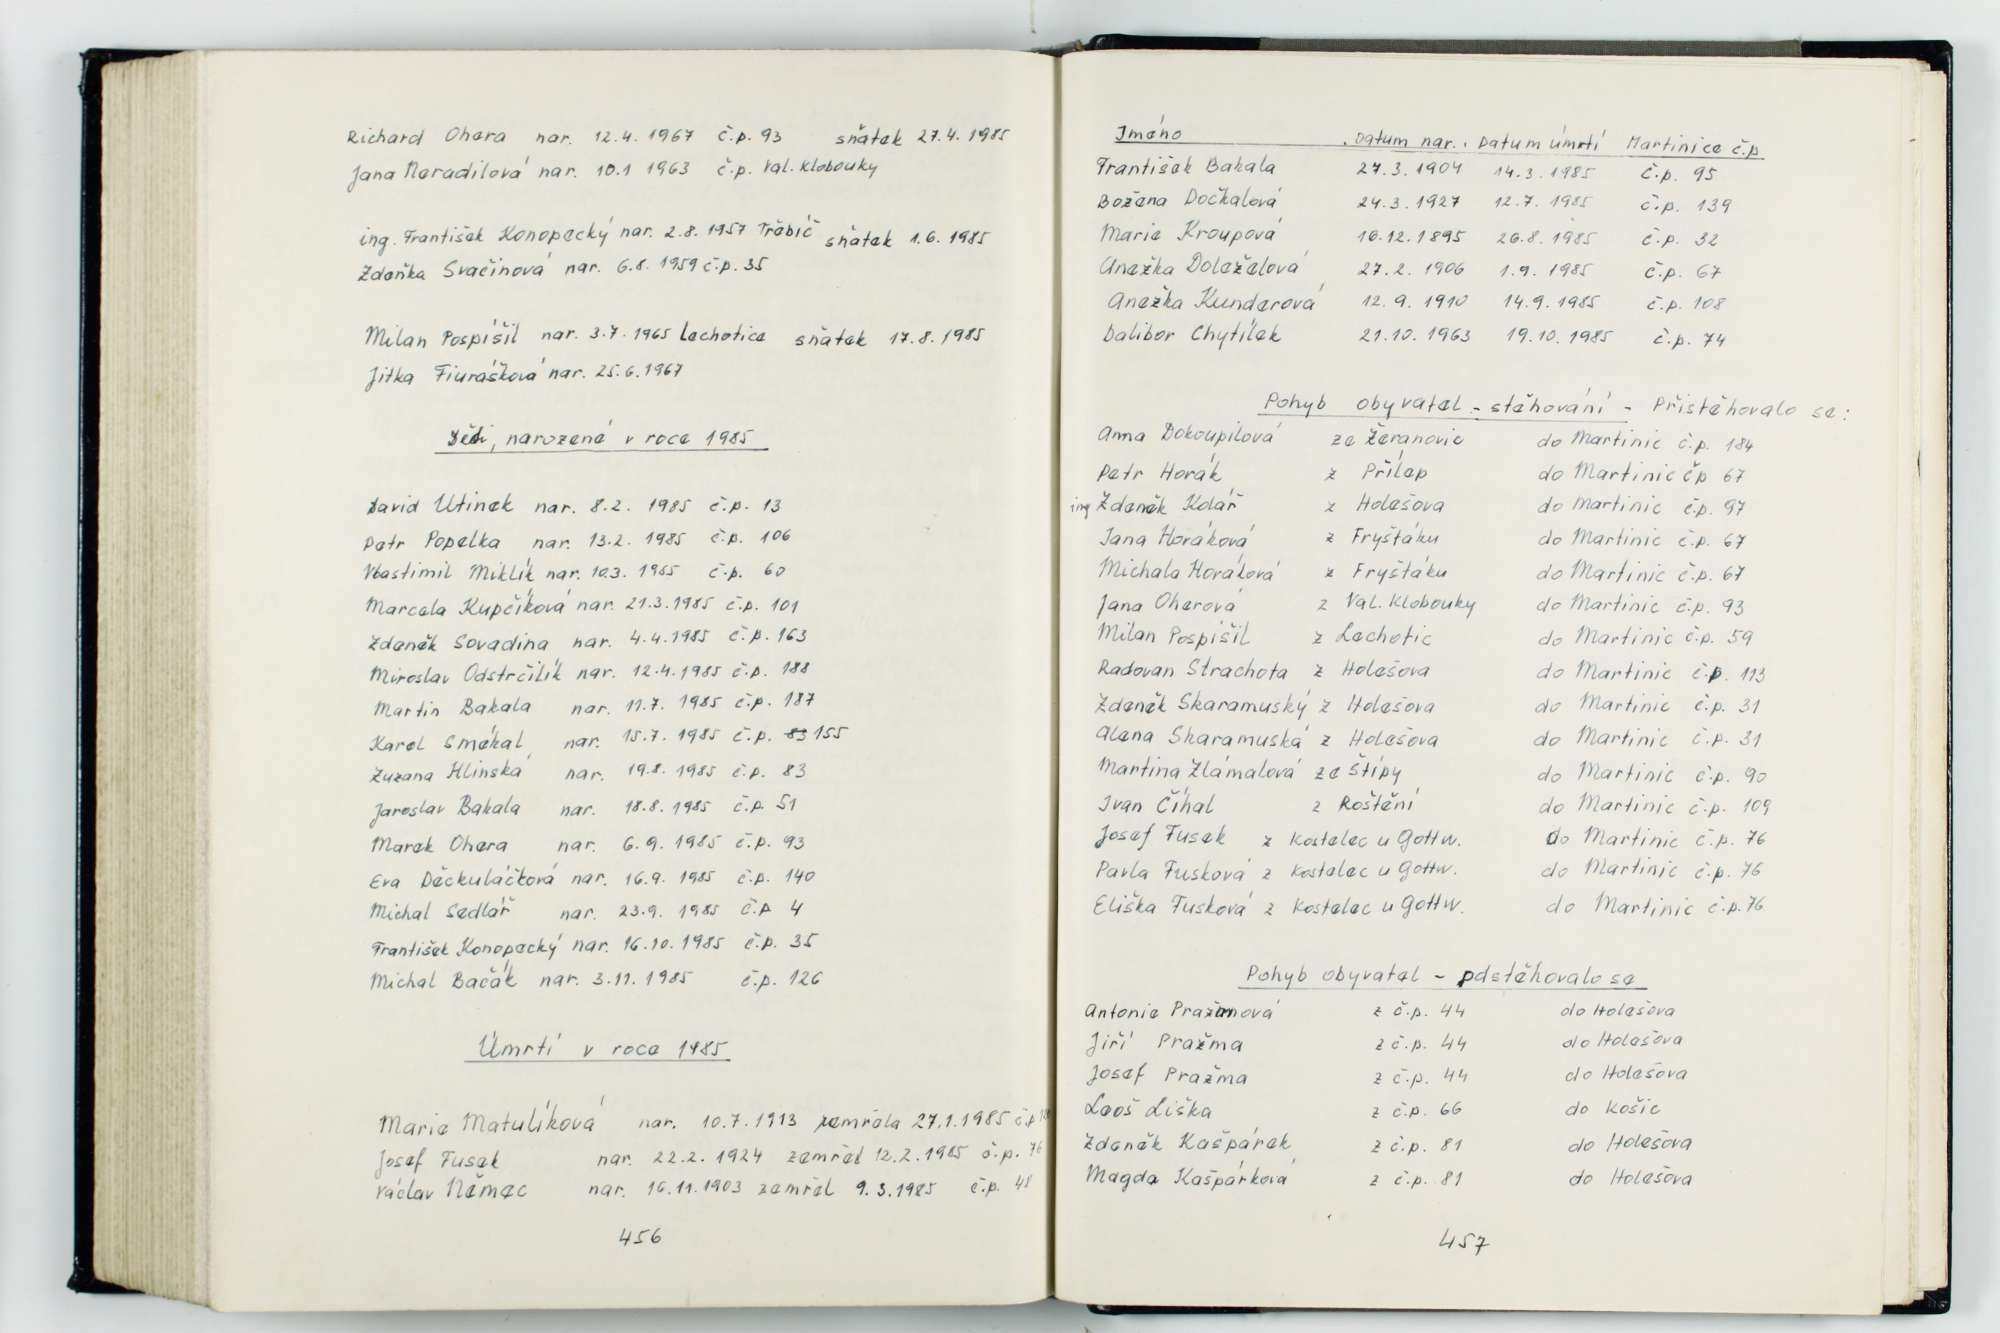 Richard Ohera nar. 12.4.1967 č.p. 93 sňatek 27.4.1985
Jana Neradilová nar. 10.1 1963 č.p. Val. Klobouky
ing. František Konopecký nar. 2.8.1957 Třebíč sňatek 1.6.1985
Zdeňka Svačinová nar. 6.8.1959 č.p. 35
Milan Pospíšil nar. 3.7.1965 Lechotice sňatek 17.8.1985
Jitka Fiurášková nar. 25.6.1967
Děti, narozené v roce 1985
David Utinek nar. 8.2. 1985 č.p. 13
Petr Popelka nar. 13.2. 1985 č.p. 106
Vlastimil Miklík nar. 10.3. 1985 č.p. 60
Marcela Kupčíková nar. 21.3.1985 č.p. 101
Zdeněk Sovadina nar. 4.4.1985 č.p. 163
Miroslav Odstrčilík nar. 12.4.1985 č.p. 188
Martin Bakala nar. 11.7. 1985 č.p. 187
Karel Smékal nar. 15.7. 1985 č.p. 83 155
Zuzana Hlinská nar. 19.8. 1985 č.p. 83
Jaroslav Bakala nar. 18.8. 1985 č.p. 51
Marek Ohera nar. 6.9. 1985 č.p. 93
Eva Děckuláčková nar. 16.9. 1985 č.p. 140
Michal Sedlář nar. 23.9. 1985 č.p 4
František Konopecký nar. 16.10.1985 č.p. 35
Michal Bačák nar. 3.11.1985 č.p. 126
Úmrtí v roce 1985
Marie Matulíková nar. 10.7.1913 zemřela 27.1.1985 č.p
Josef Fusek nar. 22.2. 1924 zemřel 12.2.1985 č.p. 76
Václav Němec nar. 16.11.1903 zemřel 9.3.1985 č.p. 48
456
Jméno Datum nar. Datum úmrtí Martinice č.p
František Bakala 27.3.1904 14.3.1985 č.p. 95
Božena Dočkalová 24.3.1927 12.7.1985 č.p. 139
Marie Kroupová 16.12.1895 26.8.1985 č.p. 32
Anežka Doleželová 27.2.1906 1.9.1985 č.p. 67
Anežka Kunderová 12.9.1910 14.9.1985 č.p. 108
Dalibor Chytílek 21.10.1963 19.10.1985 č.p. 74
Pohyb obyvatel - stěhování - Přistěhovalo se:
Anna Dokoupilová ze Žeranovic do Martinic č.p. 184
Petr Horák z Přílep do Martinic čp 67
ing Zdeněk Kolář z Holešova do Martinic č.p. 97
Jana Horáková z Fryštáku do Martinic č.p. 67
Michala Horáková z Fryštáku do Martinic č.p. 67
Jana Oherová z Val. Klobouky do Martinic č.p. 93
Milan Pospíšil z Lechotic do Martinic č.p. 59
Radovan Strachota z Holešova do Martinic č.p. 113
Zdeněk Skaramuský z Holešova do Martinic č.p. 31
Alena Skaramuská z Holešova do Martinic č.p. 31
Martina Zlámalová ze Štípy do Martinic č.p. 90
Ivan Číhal z Roštění do Martinic č.p. 109
Josef Fusek z Kostelec u Gottw. do Martinic č.p. 76
Pavla Fusková z Kostelec u Gottw. do Martinic č.p. 76
Eliška Fusková z Kostelec u Gottw. do Martinic č.p. 76
Pohyb obyvatel - odstěhovalo se
Antonie Pražmová z č.p. 44 do Holešova
Jiří Pražma z č.p. 44 do Holešova
Josef Pražma z č.p. 44 do Holešova
Leoš Liška z č.p. 66 do Košic
Zdeněk Kašpárek z č.p. 81 do Holešova
Magda Kašpárková z č.p. 81 do Holešova
457